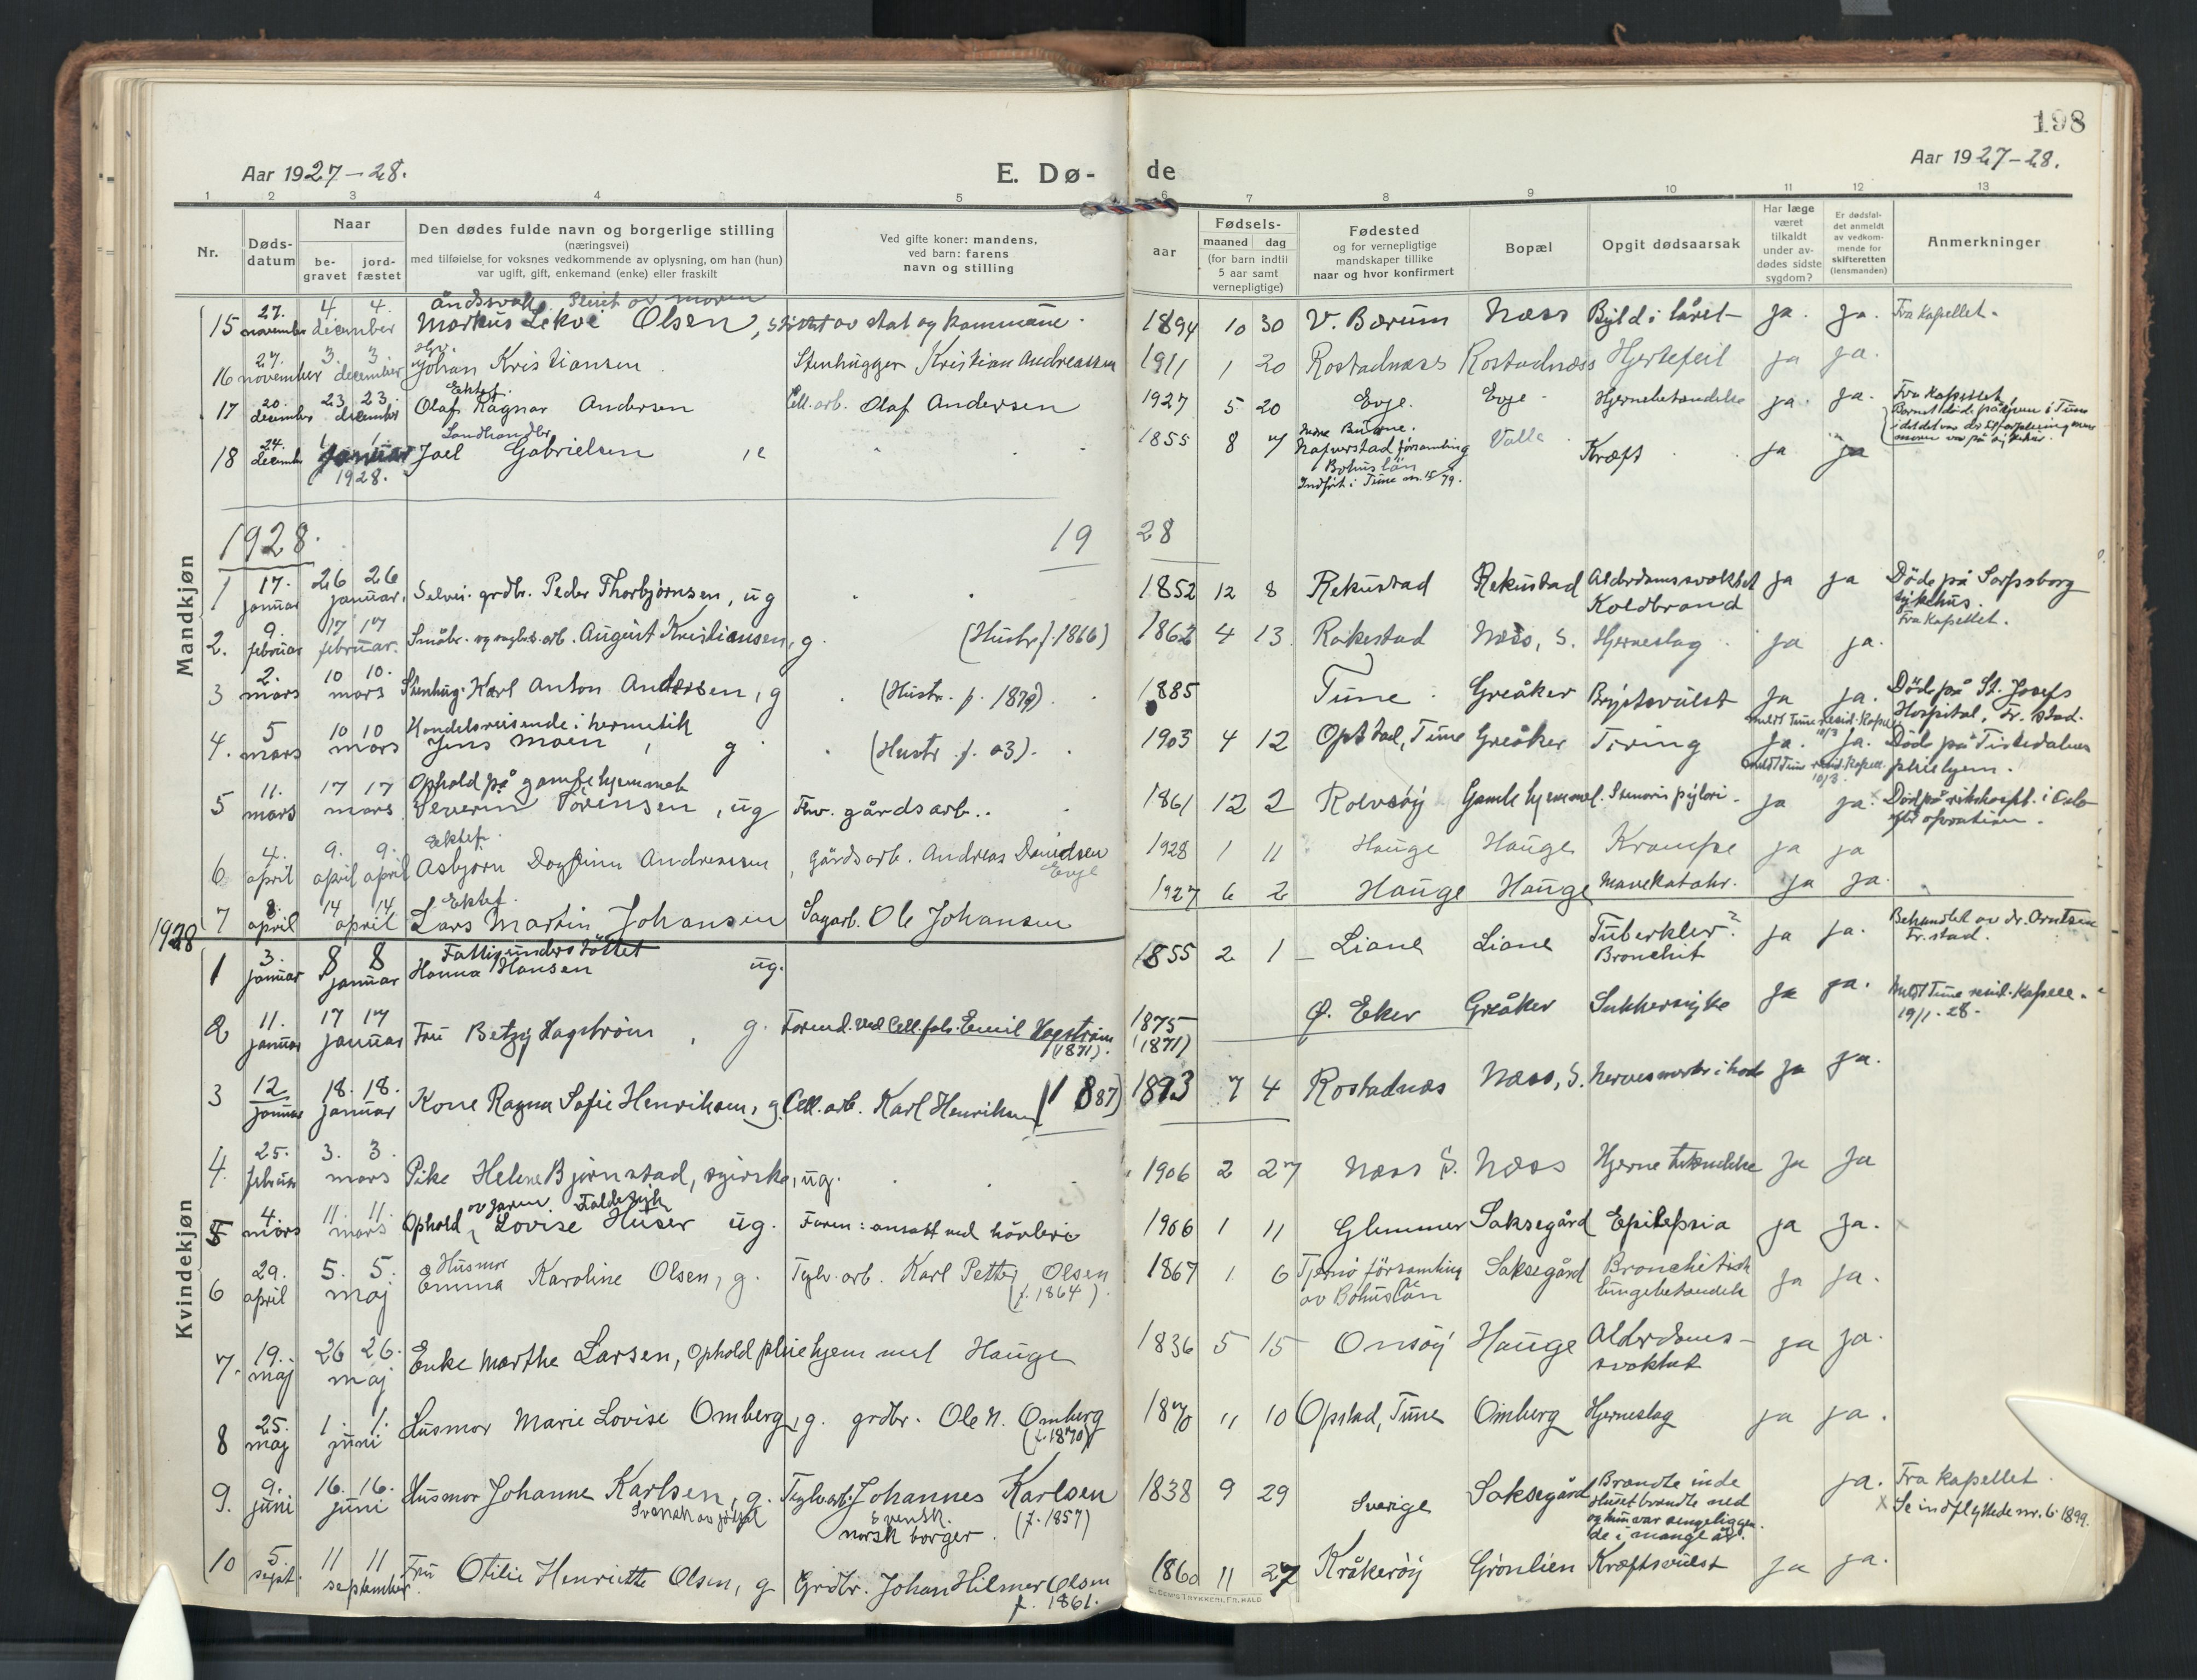 198
Aar 1927-28.
E. Dø-
de
Aar 1927-28.
1 2 3 4 5 6 7 8 9 10 11 12 13
Nr.
Døds-
datum
Naar
be-
gravet
jord-
fæstet
Den dødes fulde navn og borgerlige stilling
(næringsvei)
med tilføielse for voksnes vedkommende av oplysning, om han (hun)
var ugift, gift, enkemand (enke) eller fraskilt
Ved gifte koner: mandens,
ved barn: farens
navn og stilling
aar
Fødsels-
maaned dag
(for barn indtil
5 aar samt
vernepligtige)
Fødested
og for vernepligtige
mandskaper tillike
naar og hvor konfirmert
Bopæl
Opgit dødsaarsak
Har læge
været
tilkaldt
under av-
dødes sidste
sygdom?
Er dødsfal-
det anmeldt
av vedkom-
mende for
skifteretten
(lensmanden)
Anmerkninger
Mandkjøn
15 27. november 4. 4. december Åndssvak. Markus Lekve Olsen, av stat og kommune. 1894 10 30 V. Bærum Næss Byld i låret ja. ja. Fra kapellet.
16 27. november 3. 3. december Johan Kristiansen Stenhugger Kristian Andreassen 1911 1 20 Rostadnæss Rostadnæss Hjertefeil ja ja.
17 20. december 23 23. december Ektef. Olaf Ragnar Andersen Cell. arb. Olaf Andersen 1927 5 20 Evje. Evje Hjernebetændelse ja. ja. Fra kapellet,
18 24. december 1 1 januar 1928. Landhandler Joel Gabrielsen, e 1855 8 7 Nafverstad församling Bohus län Indfrit i Tune Valle Kræft ja ja
1928. 19 28
1 17. januar 26 26 januar. Selvei. grdbr. Peder Thorbjørnsen, ug 1852 12 8 Rekustad Rekustad Alderdomssvakhet Koldbrand ja ja Døde på Sarpsborg sykehus. Fra kapellet.
2. 9. februar 17 17 februar. Småbr. og arb. August Kristiansen, g. (Hustr f. 1866) 1862 4 13. Rakestad Næss, S. Hjerneslag ja ja.
3 2. mars 10 10. mars Stenhug. Karl Anton Andersen, g (Hustr. f. 1879) 1885 Tune. Greåker Brystsvulst ja ja. Døde på St. Josefs Hospital, Fr. stad.
4. 5 mars 10 10 mars Handelsreisende i hermetik Jens Moen, g (Hustr f. 03). 1903 4 12 Opstad, Tune Greåker Tæring ja. ja. Døde på Tistedalens pleiehjem.
5 11. mars 17 17 mars Ophold på gamlehjemmet Severin Sørensen, ug Fhv. gårdsarb. 1861 12 2 Rolvsøy Gamlehjemmet. Stenoris pylori ja ja. Død på rikshospt. i Oslo efter operation.
6 4. april 9. 9. april april Ektef. Asbjørn Dagfinn Andreassen gårdsarb. Andreas Davidsen Evje 1928 1 11 Hauge Hauge Krampe ja ja
7 8. april 14 14 april Ektef. Lars Martin Johansen Sagarb. Ole Johansen 1927 6 2 Hauge Hauge Mavekatahr. ja ja.
1928
Kvindekjøn
1 3. januar 8 8 januar Fattigunderstøttet Hanna Hansen ug. 1855 2 1 Liane Liane Tuberkler? Bronchit ja ja. Behandlet av dr. Arntsen Fr. stad.
2 11. januar 17 17 januar Fru Betzy Hagstrøm, g. Formd. ved Cell. fab. Emil Hagstrøm (1871). 1875 (1871) Ø. Eker Greåker Sukkersyke ja ja. Meldt Tune resid. Kapell. 19/1. 28.
3 12 januar 18. 18. januar Kone Ragna Sofie Henriksen, g. Cell. arb. Karl Henriksen (1887) 1893 7 4 Rostadnæs Næss, S. ja ja.
4. 25. februar 3. 3. mars Pike Helene Bjørnstad, syerske, ug. 1906 2 27 Næss S. Næss Hjernebetændelse ja ja
5 4. mars 11. 11. mars Ophold av faren. Faldesyk Lovise Huser ug. Faren: ansatt ved høvleri 1906 1 11 Glemmen Saksegård Epilepsia ja ja.
6 29. april 5. 5. maj Husmor Emma Karoline Olsen, g. Teglv. arb. Karl Petter Olsen (f. 1864). 1867 1 6 Tjernö församling av Bohuslän Saksegård Bronchitisk lungebetændelse ja ja.
7. 19. maj 26 26. maj Enke Marthe Larsen, ophold pleiehjem ved Hauge 1836 5 15 Onsøy Hauge Alderdoms-svakhet ja ja.
8 25. maj 1. 1. juni Husmor Marie Lovise Omberg, g. grdbr. Ole N. Omberg (f. 1870) 1870 11 10 Opstad, Tune Omberg Hjerneslag ja ja.
9. 9. juni 16. 16. juni Husmor Johanne Karlsen, g. Svensk av fødsel Teglv. arb. Johannes Karlsen svensk. norsk borger. (f. 1857) 1838 9 29 Sverige Saksegård Brændte inde Huset brændte ned og hun var sengeliggende i mange år. ja. Fra kapellet. x Se indflyttede nr. 6. 1899.
10 5. sept. 11 11 september. Fru Otilie Henriette Olsen, g Grdbr. Johan Hilmer Olsen f. 1861. 1860 11 27 Kråkerøy Grønlien Kræftsvulst ja ja.